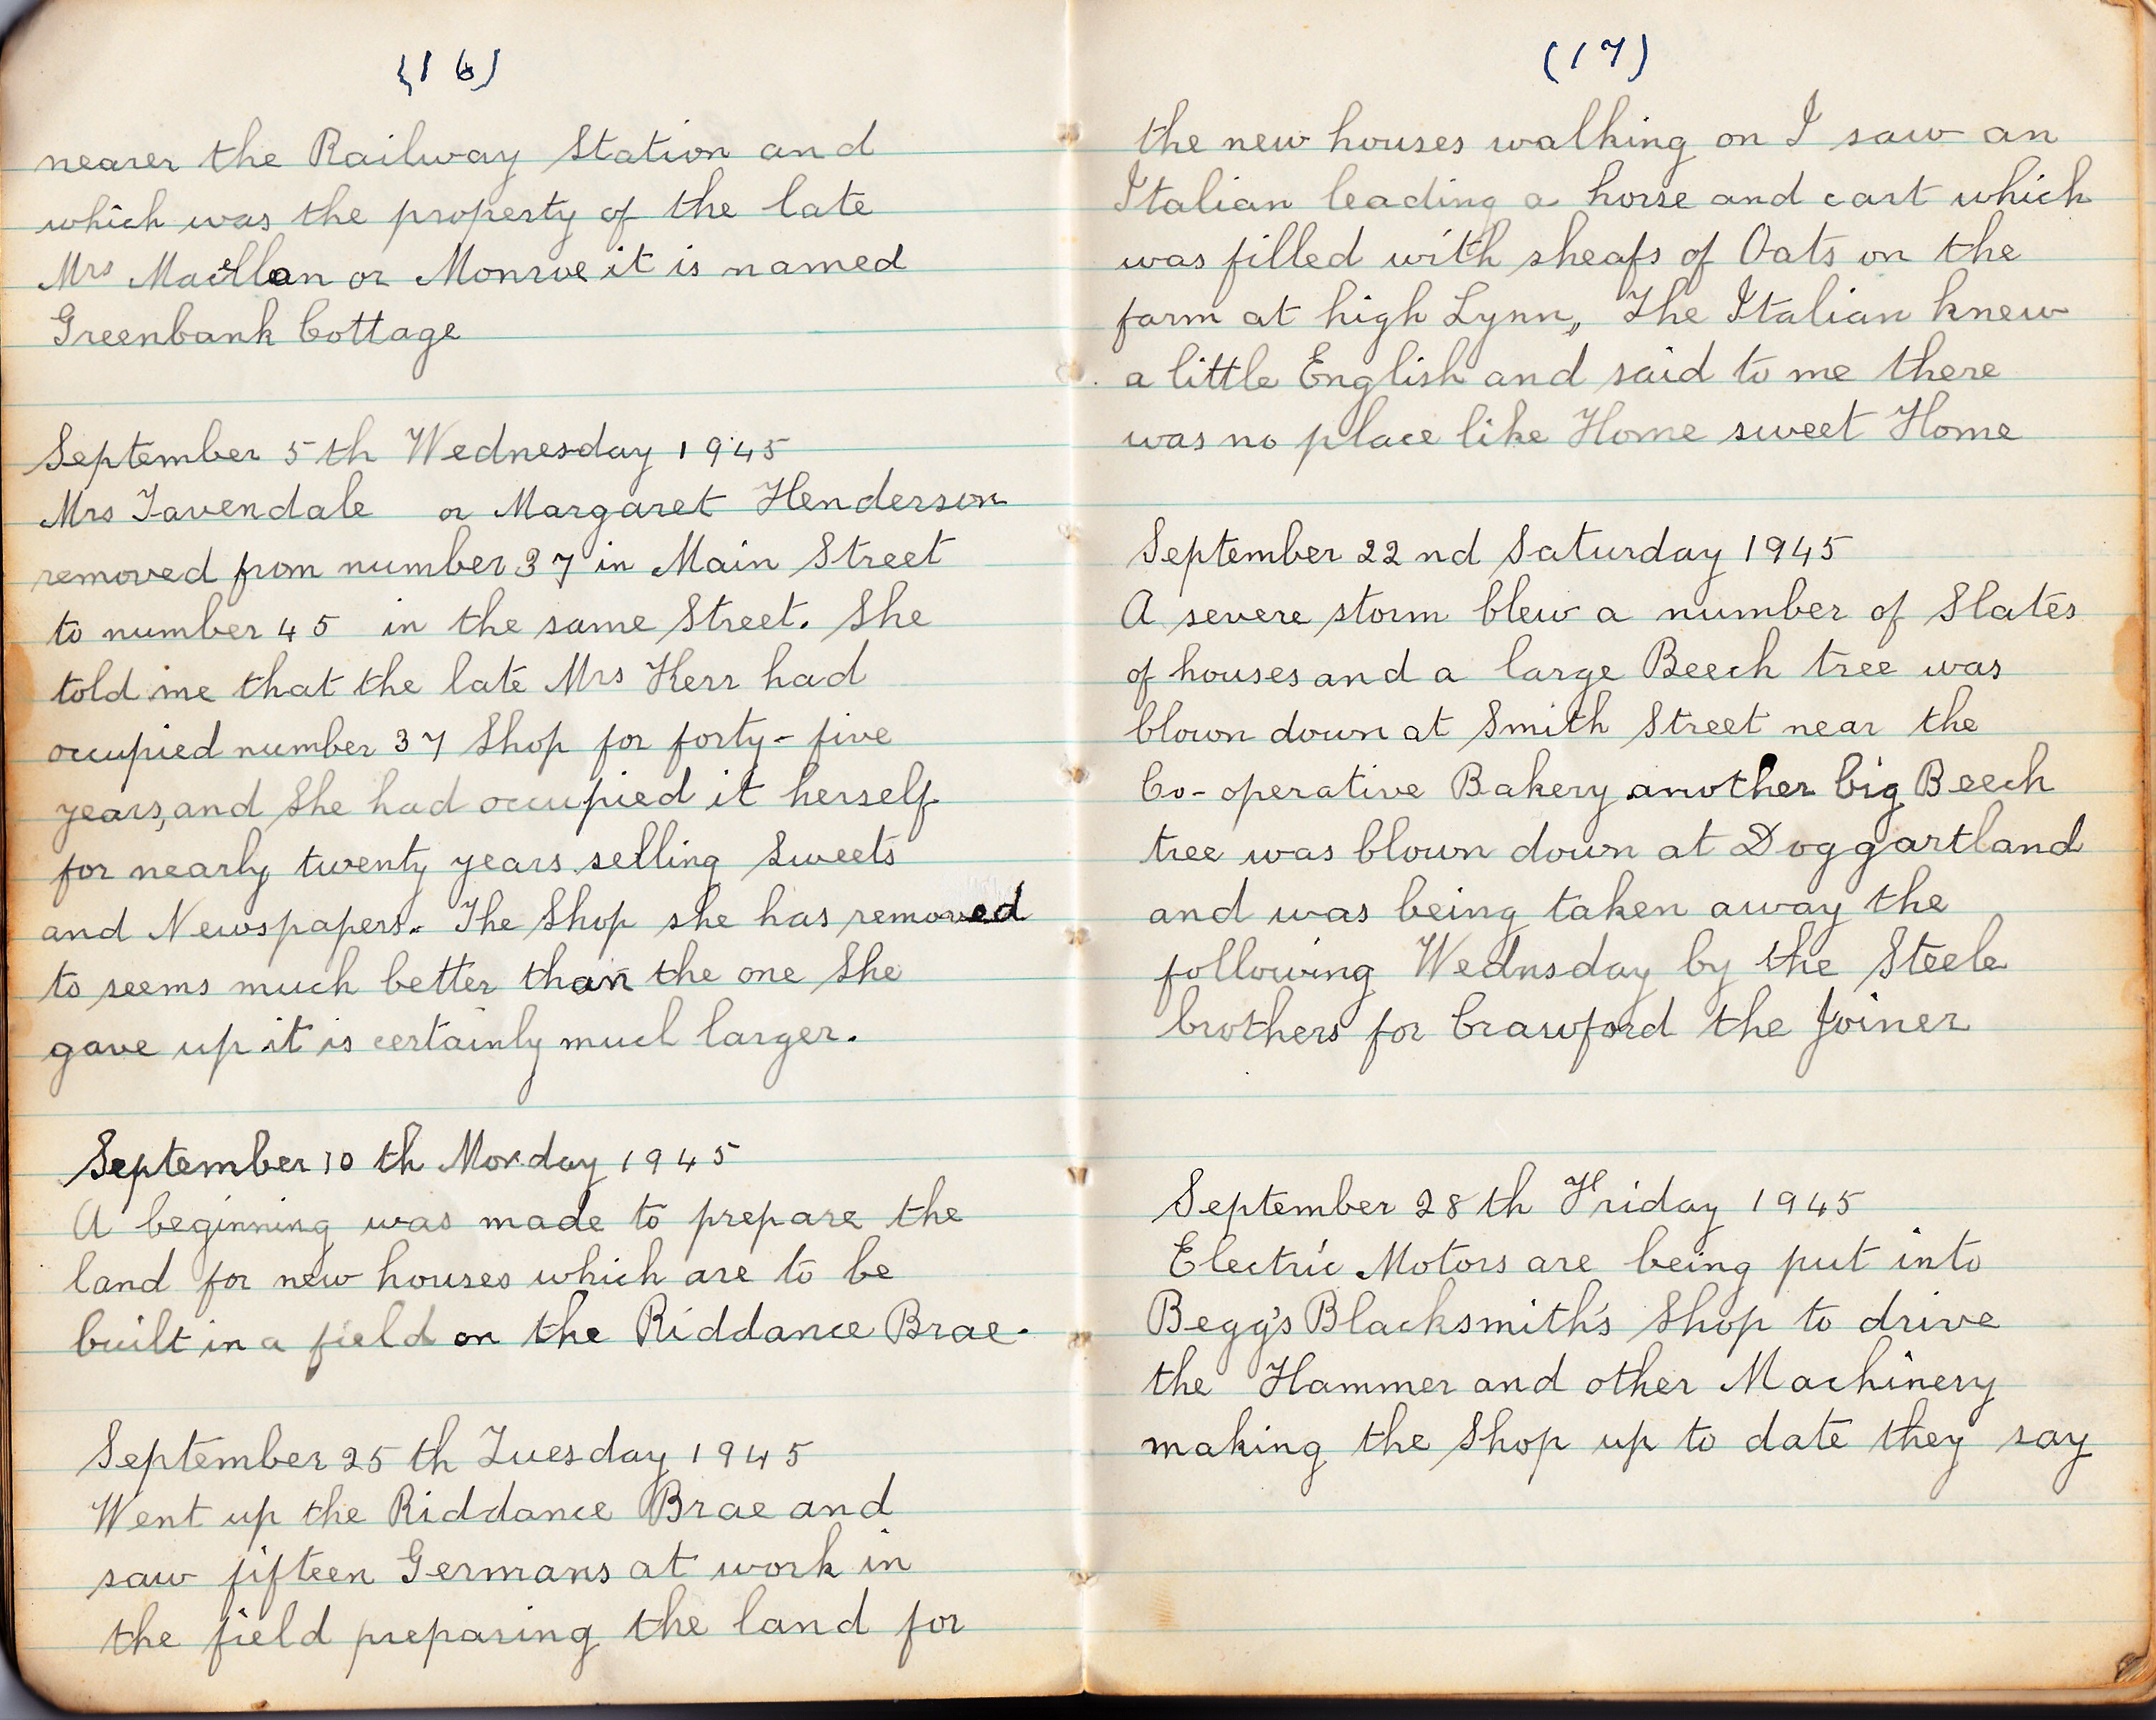 (16)
nearer the Railway Station and
which was the property of the late
Mrs Maclellan or Monroe it is named
Greenbank Cottage
September 5th Wednesday 1945
Mrs Tavendale or Margaret Henderson
removed from number 37 in Main Street
to number 45 in the same Street. She
told me that the late Mrs Kerr had
occupied number 37 Shop for forty-five
years, and She had occupied it herself
for nearly twenty years selling Sweets
and Newspapers. The Shop she has removed
to seems much better than the one She
gave up it is certainly much larger.
September 10th Monday 1945
A beginning was made to prepare the
land for new houses which are to be
built in a field on the Riddance Brae.
September 25th Tuesday 1945
Went up the Riddance Brae and
saw fifteen Germans at work in
the field preparing the land for
(17)
the new houses walking on I saw an
Italian leading a horse and cart which
was filled with sheafs of Oats on the
farm at high Lynn,, The Italian knew
a little English and said to me there
was no place like Home sweet Home
September 22nd Saturday 1945
A severe storm blew a number of Slates
of houses and a large Beech tree was
blown down at Smith Street near the
Co-operative Bakery another big Beech
tree was blown down at Doggartland
and was being taken away the
following Wednsday by the Steele
brothers for Crawford the Joiner
September 28th Friday 1945
Electric Motors are being put into
Begg's Blacksmith's Shop to drive
the Hammer and other Machinery
making the Shop up to date they say